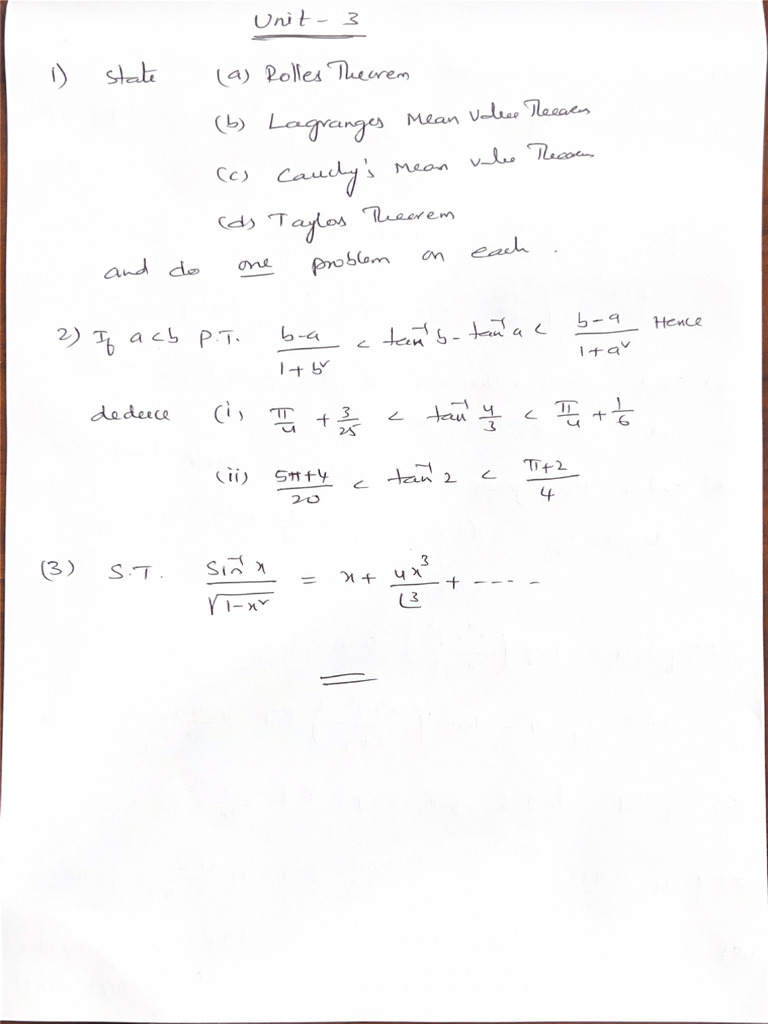 Unit - 3
1) State (a) Rolles Theorem
(b) Lagranges Mean Value Theorem
(c) Cauchy's Mean value Theorem
(d) Taylos Theorem
and do one problem on each .
2) If a<b P.T. (b-a)/(1+b²) < tan⁻¹b - tan⁻¹a < (b-a)/(1+a²) Hence
deduce (i) π/4 + 3/25 < tan⁻¹ 4/3 < π/4 + 1/6
(ii) (5π+4)/20 < tan⁻¹ 2 < (π+2)/4
(3) S.T. Sin⁻¹ x/√(1-x²) = x + 4x³/⌊3 + -----